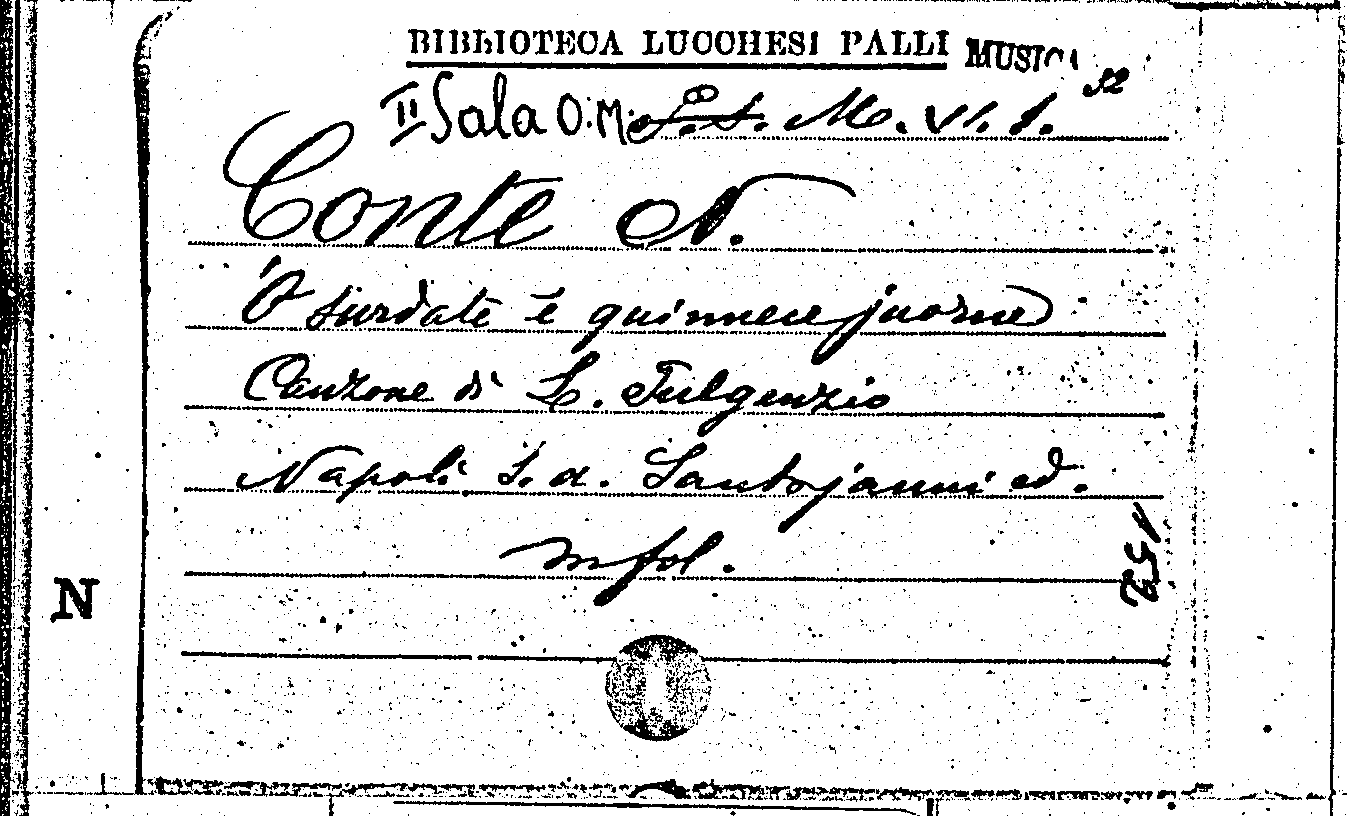 BIBLIOTECA LUCCHESI PALLI MUSICA
II Sala O. M. S. S. M. VI. 1. 52
Conte N.
'O surdate 'e quinnece juorne
Canzone di L. Fulgenzio
Napoli S. d. Santojanni ed.
in fol.
152
N